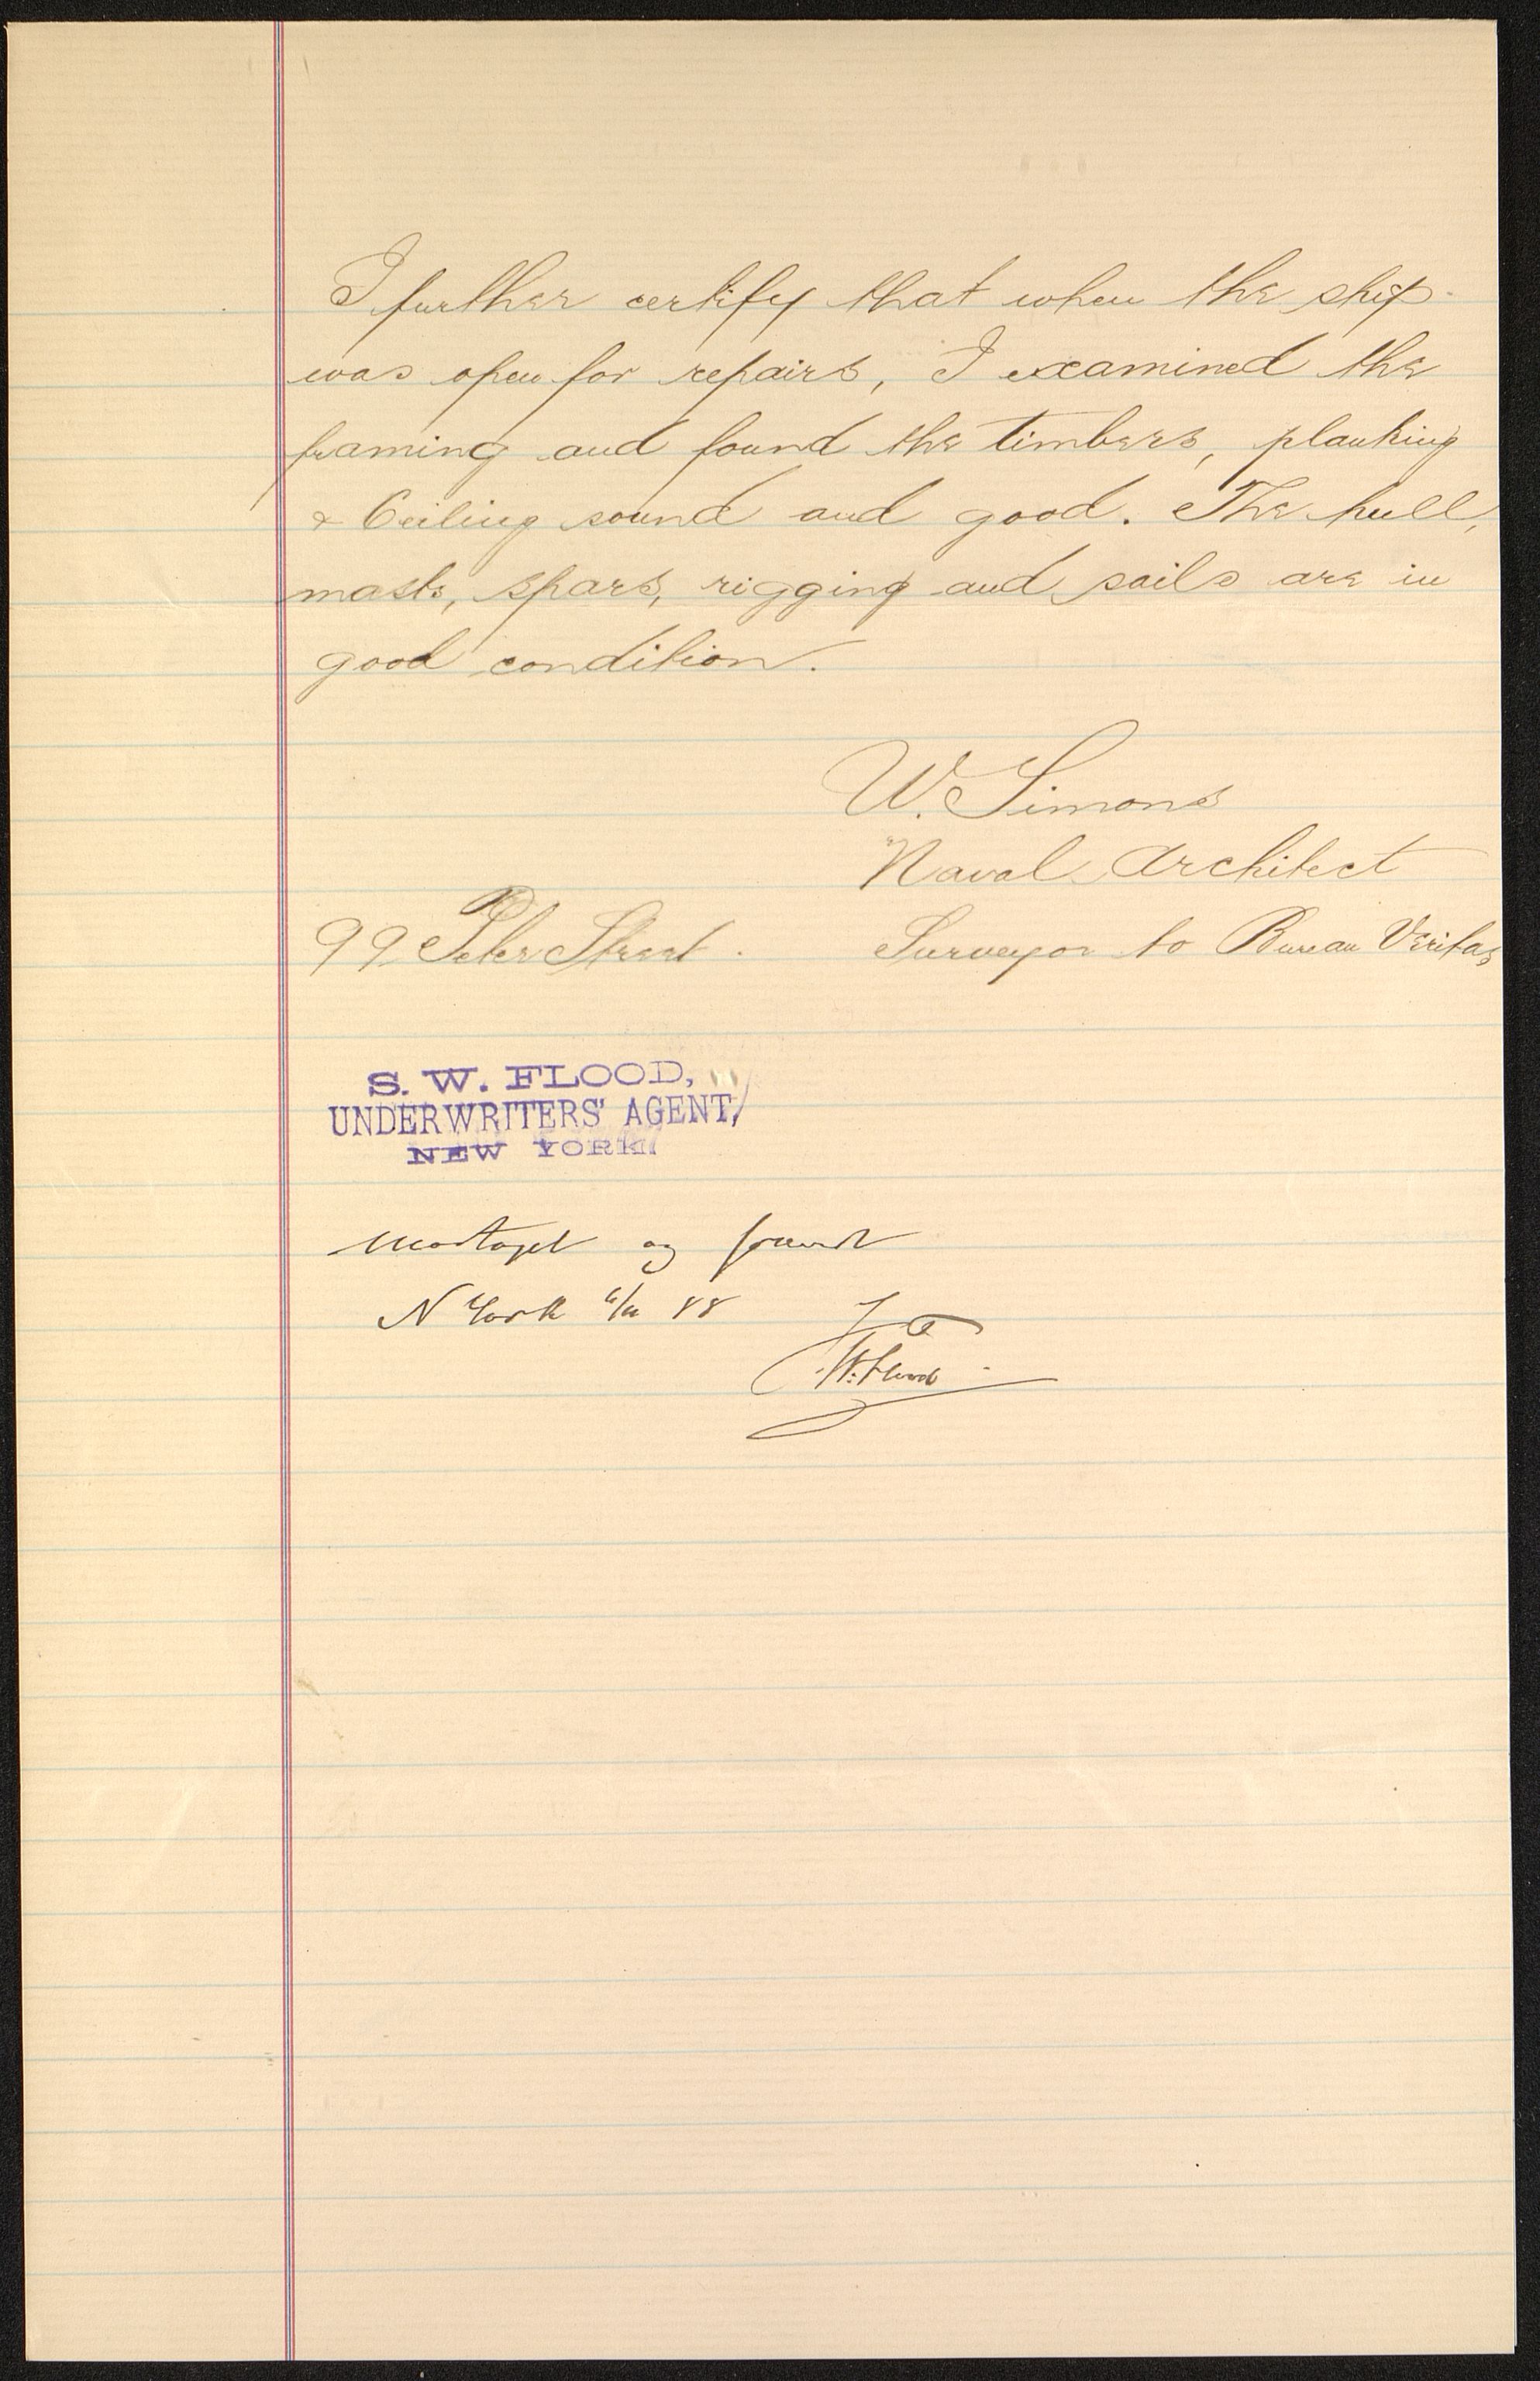 I further certify that when the ship
was open for repairs, I examined the
framing and found the timbers, planking
& Ceiling sound and good. The hull,
masts, spars, rigging and sails are in
good condition.
W. Simons
Naval Architect
99 Peter Street. Surveyor to Bureau Veritas
S. W. FLOOD,
UNDERWRITERS' AGENT,
NEW YORK
og
N York 88
W. Flood